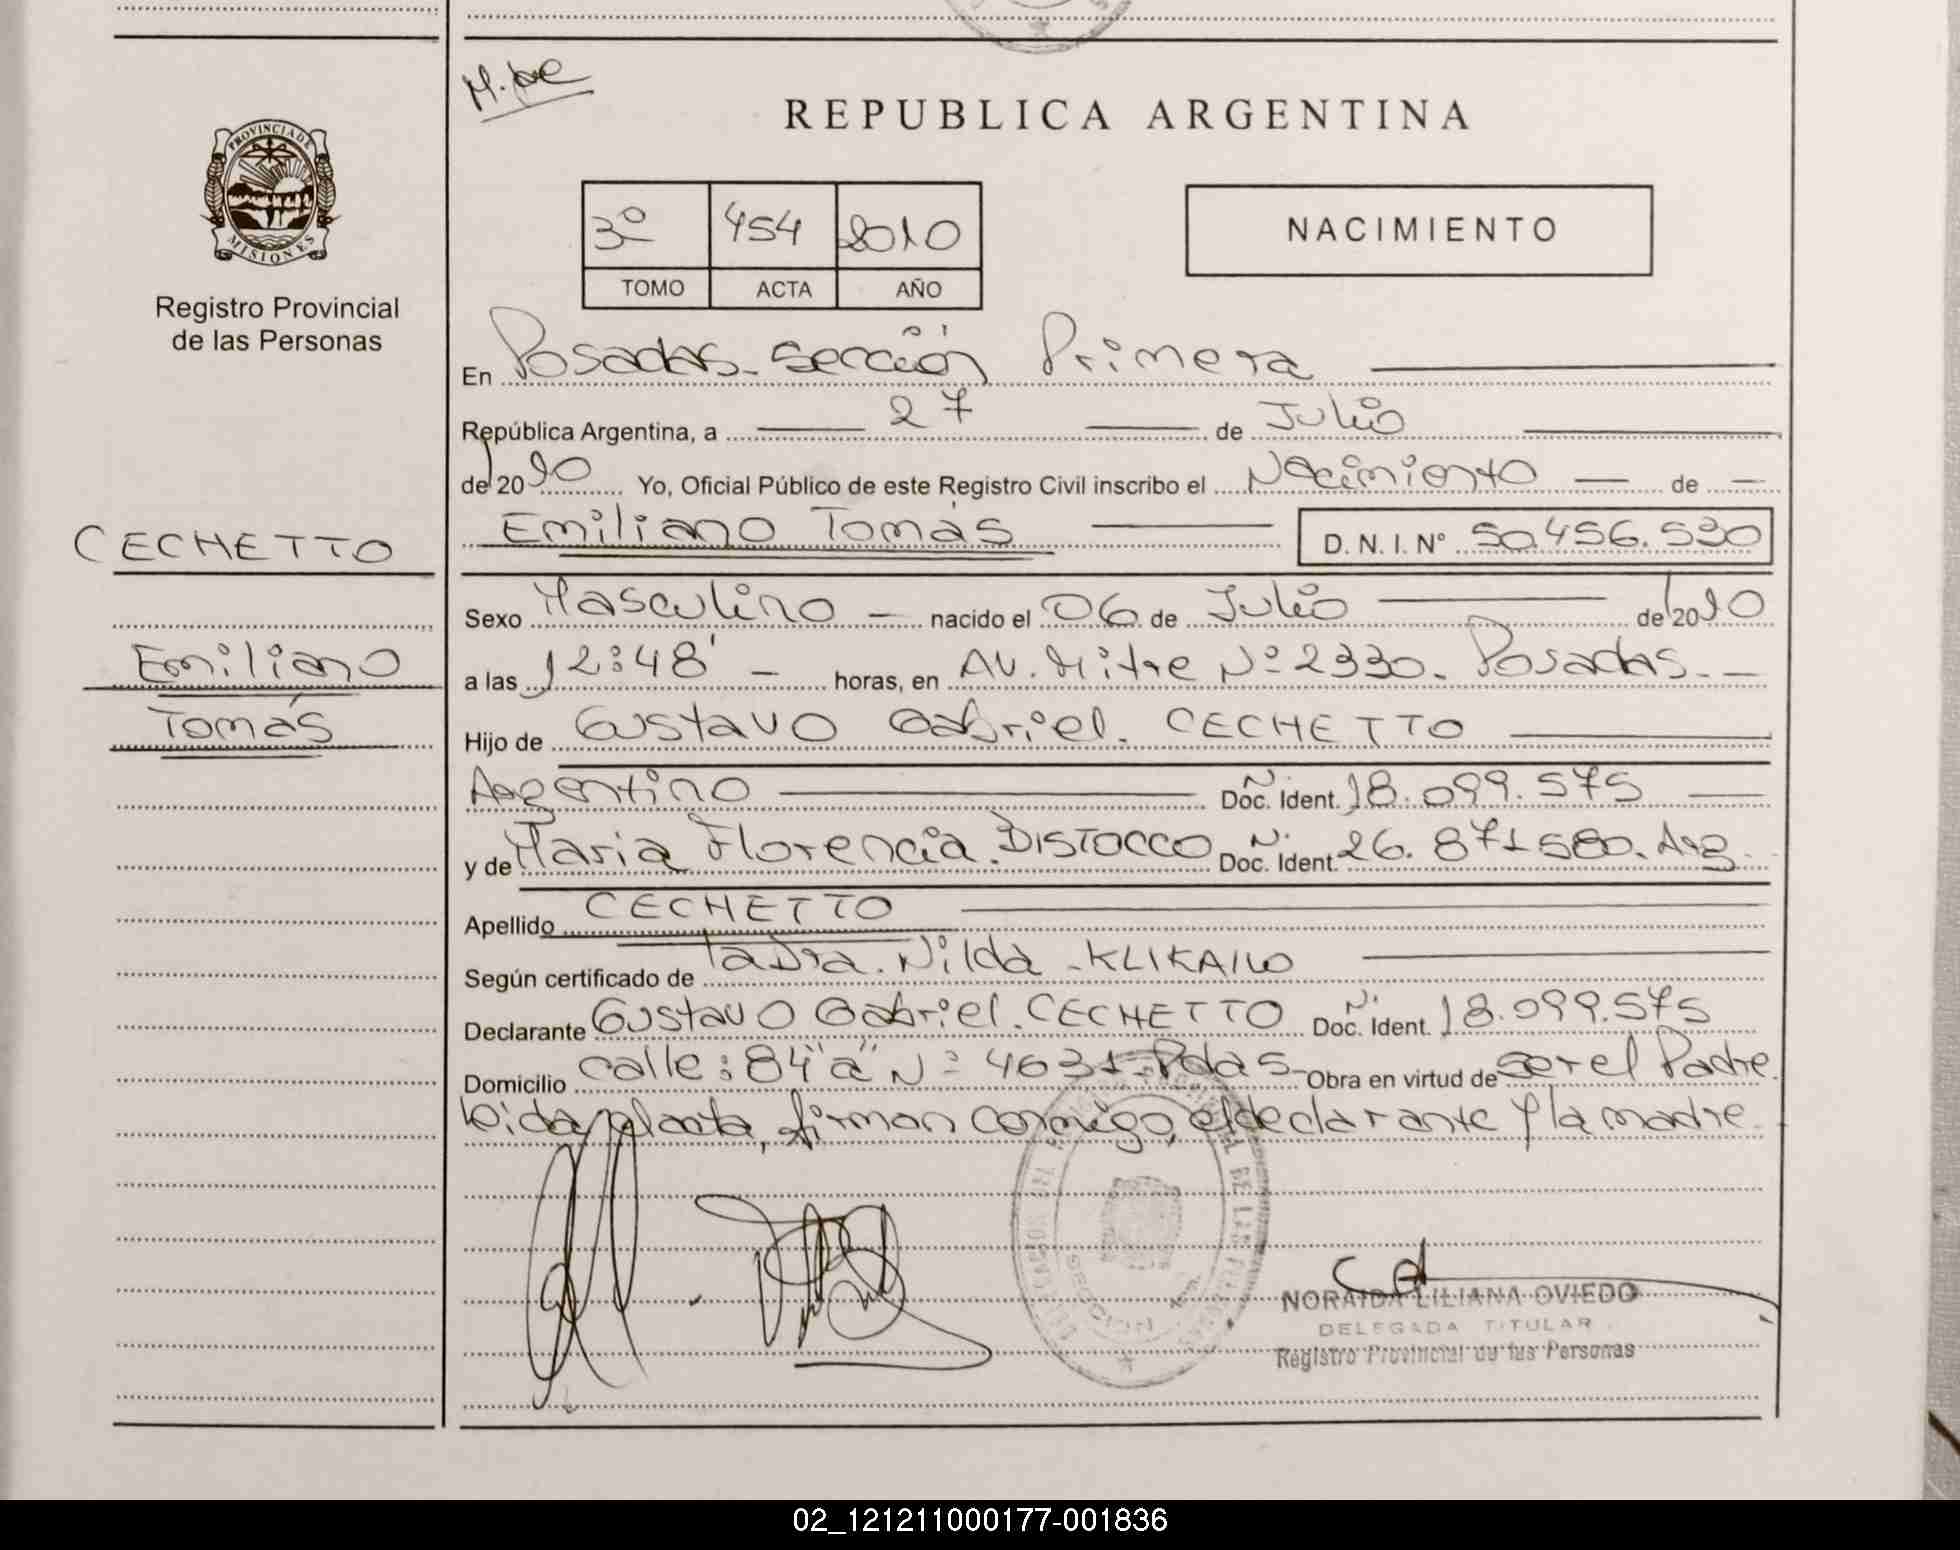 M. de
REPUBLICA ARGENTINA
PROVINCIA DE
MISIONES
Registro Provincial
de las Personas
3º 454 2010
TOMO ACTA AÑO
NACIMIENTO
En Posadas - Sección Primera
República Argentina, a 27 de Julio
de 2010 Yo, Oficial Público de este Registro Civil inscribo el Nacimiento de
CECHETTO
Emiliano Tomás D. N. I. Nº 50.456.530
Sexo Masculino nacido el 06 de Julio de 2010
Emiliano
a las 12:48' horas, en AV. Mitre Nº 2330. Posadas.
Tomás
Hijo de Gustavo Gabriel. CECHETTO
Argentino Nº Doc. Ident. 18.099.575
y de Maria Florencia. DISTOCCO Nº Doc. Ident. 26.871580. Arg.
Apellido CECHETTO
Según certificado de la Dra. Nilda - KLIKAILO
Declarante Gustavo Gabriel. CECHETTO Nº Doc. Ident. 18.099.575
Domicilio calle: 84"a" Nº 4631 - Pdas - Obra en virtud de ser el Padre.
Leida el acta, firman conmigo, el declarante y la madre.
NORAIDA LILIANA OVIEDO
DELEGADA TITULAR
Registro Provincial de las Personas
02_121211000177-001836